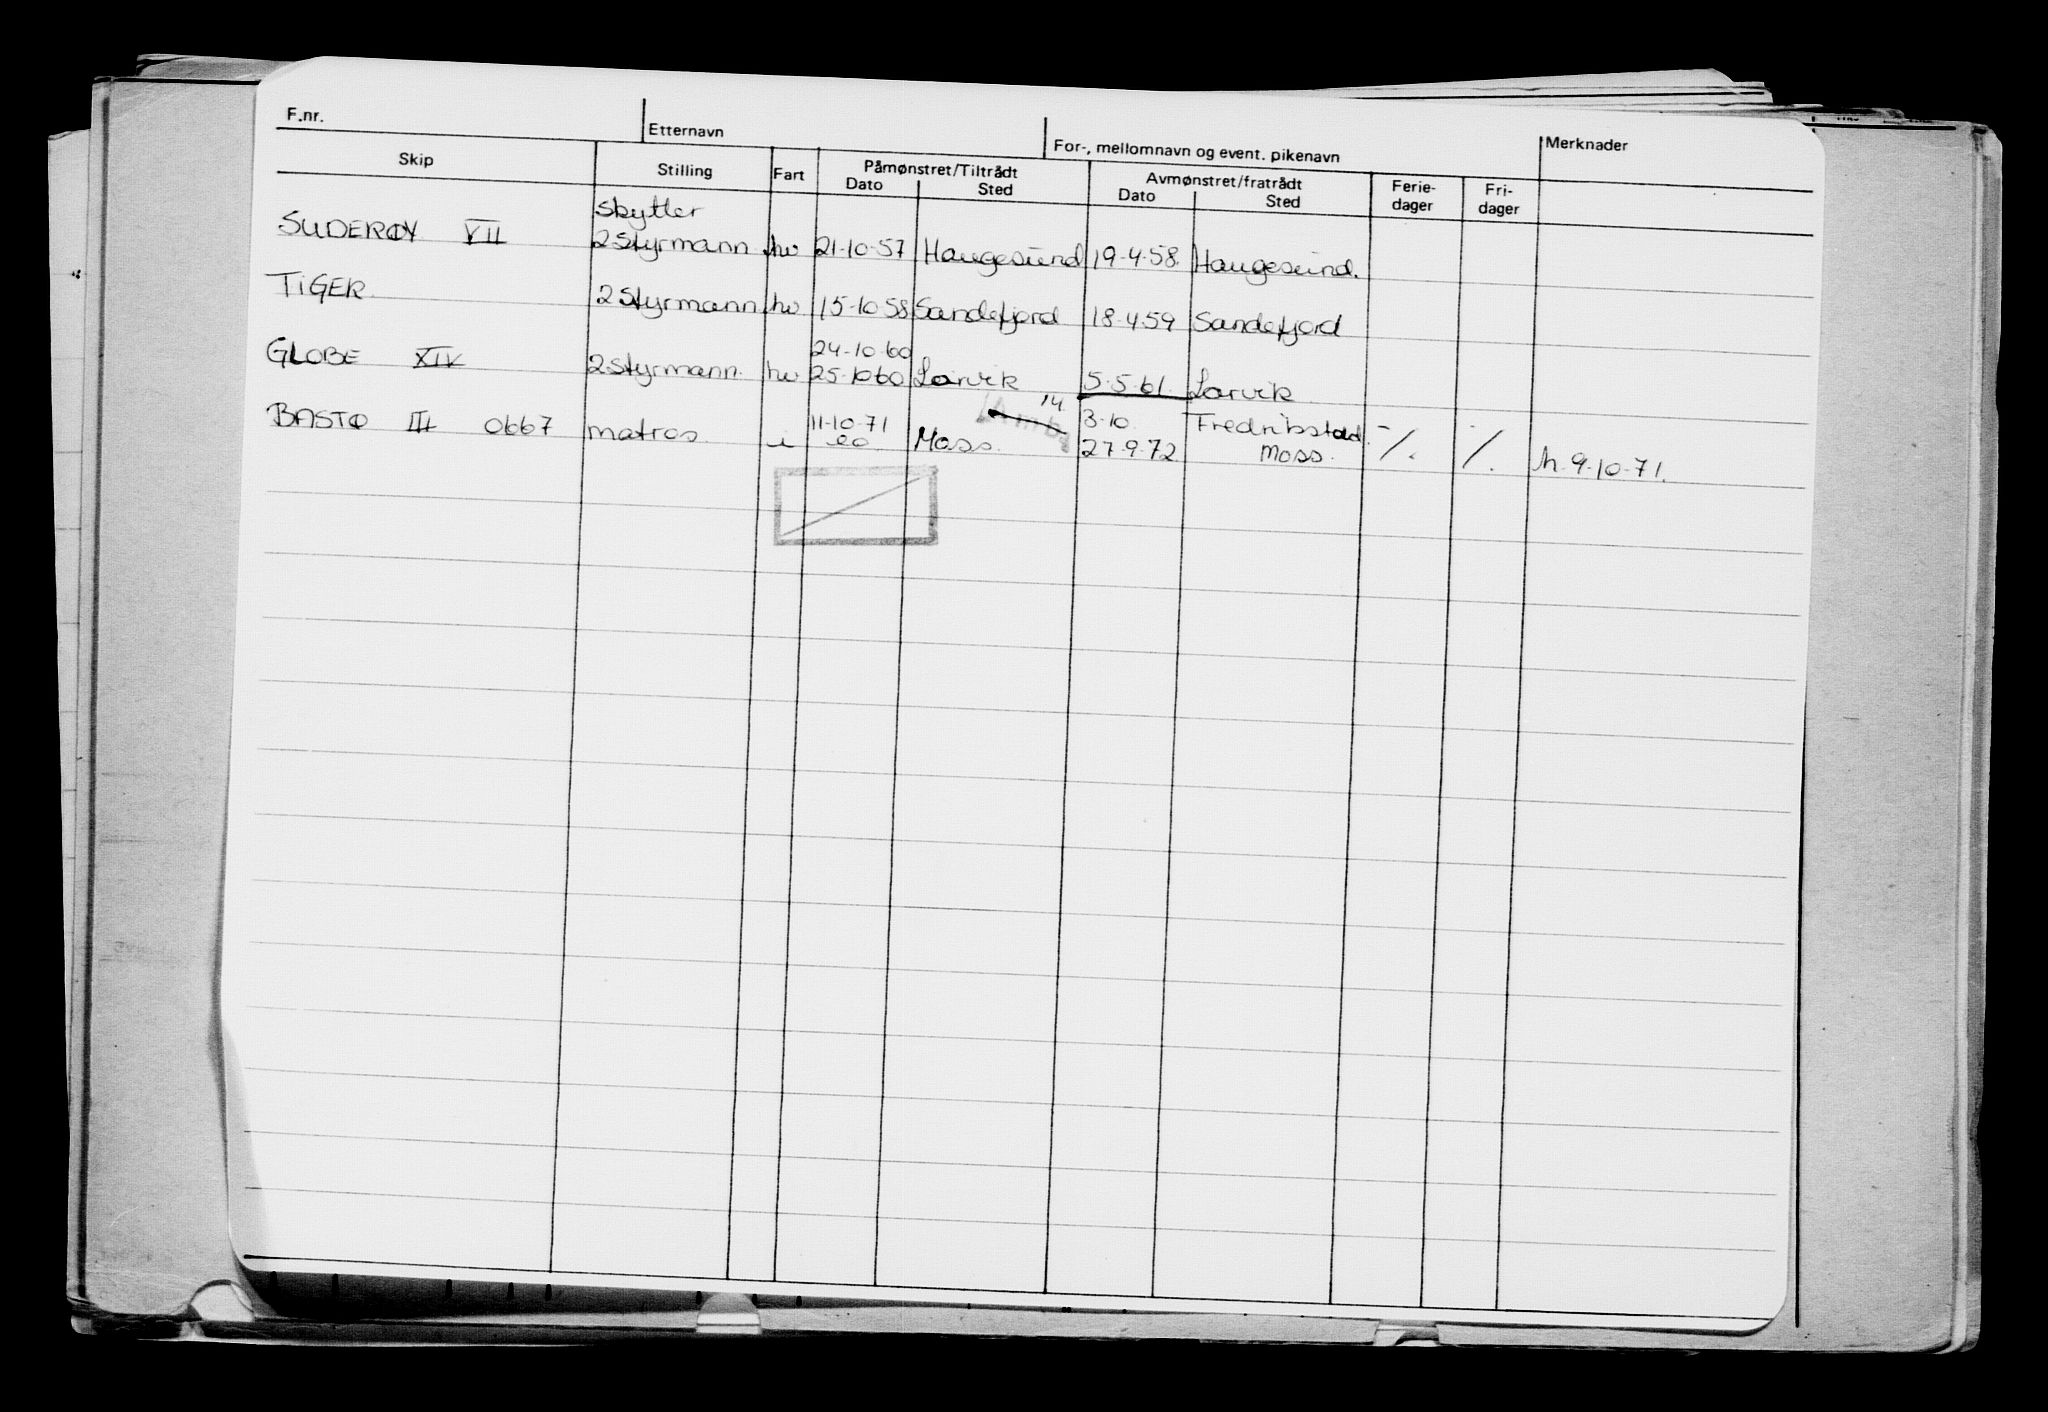 F.nr. Etternavn For-, mellomnavn og event. pikenavn Merknader
Skip Stilling Fart Påmønstret/Tiltrådt Avmønstret/fratrådt Ferie-dager Fri-dager
Dato Sted Dato Sted
Skytter
SUDERØY VII 2Styrmann hv 21-10-57 Haugesund 19-4-58. Haugesund.
TIGER 2Styrmann hv 15-10 58 Sandefjord 18-4-59 Sandefjord
24-10-60
GLOBE XIV 2Styrmann hv 25-10 60 Larvik 5-5-61. Larvik
14
11-10-71 3-10 Fredrikstad.
BASTØ III 0667 matros i Moss. 27-9-72 Moss. -/. -/. 9-10-71.